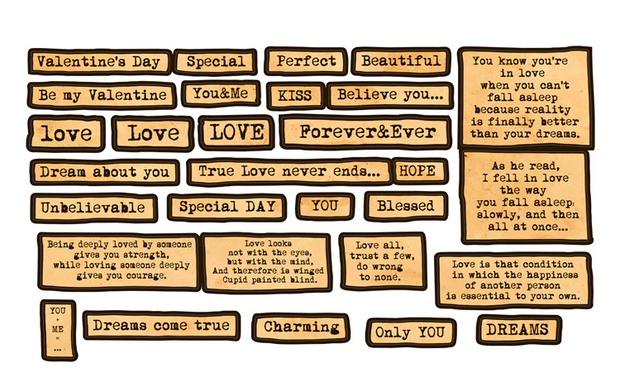 Valentine's Day
Special
Perfect
Beautiful
Be my Valentine
You&Me
KISS
Believe you...
love
Love
LOVE
Forever&Ever
Dream about you
True Love never ends...
HOPE
Unbelievable
Special DAY
YOU
Blessed
You know you're
in love
when you can't
fall asleep
because reality
is finally better
than your dreams.
As he read,
I fell in love
the way
you fall asleep:
slowly, and then
all at once...
Being deeply loved by someone
gives you strength,
while loving someone deeply
gives you courage.
Love looks
not with the eyes,
but with the mind,
And therefore is winged
Cupid painted blind.
Love all,
trust a few,
do wrong
to none.
Love is that condition
in which the happiness
of another person
is essential to your own.
YOU
+
ME
=
...
Dreams come true
Charming
Only YOU
DREAMS